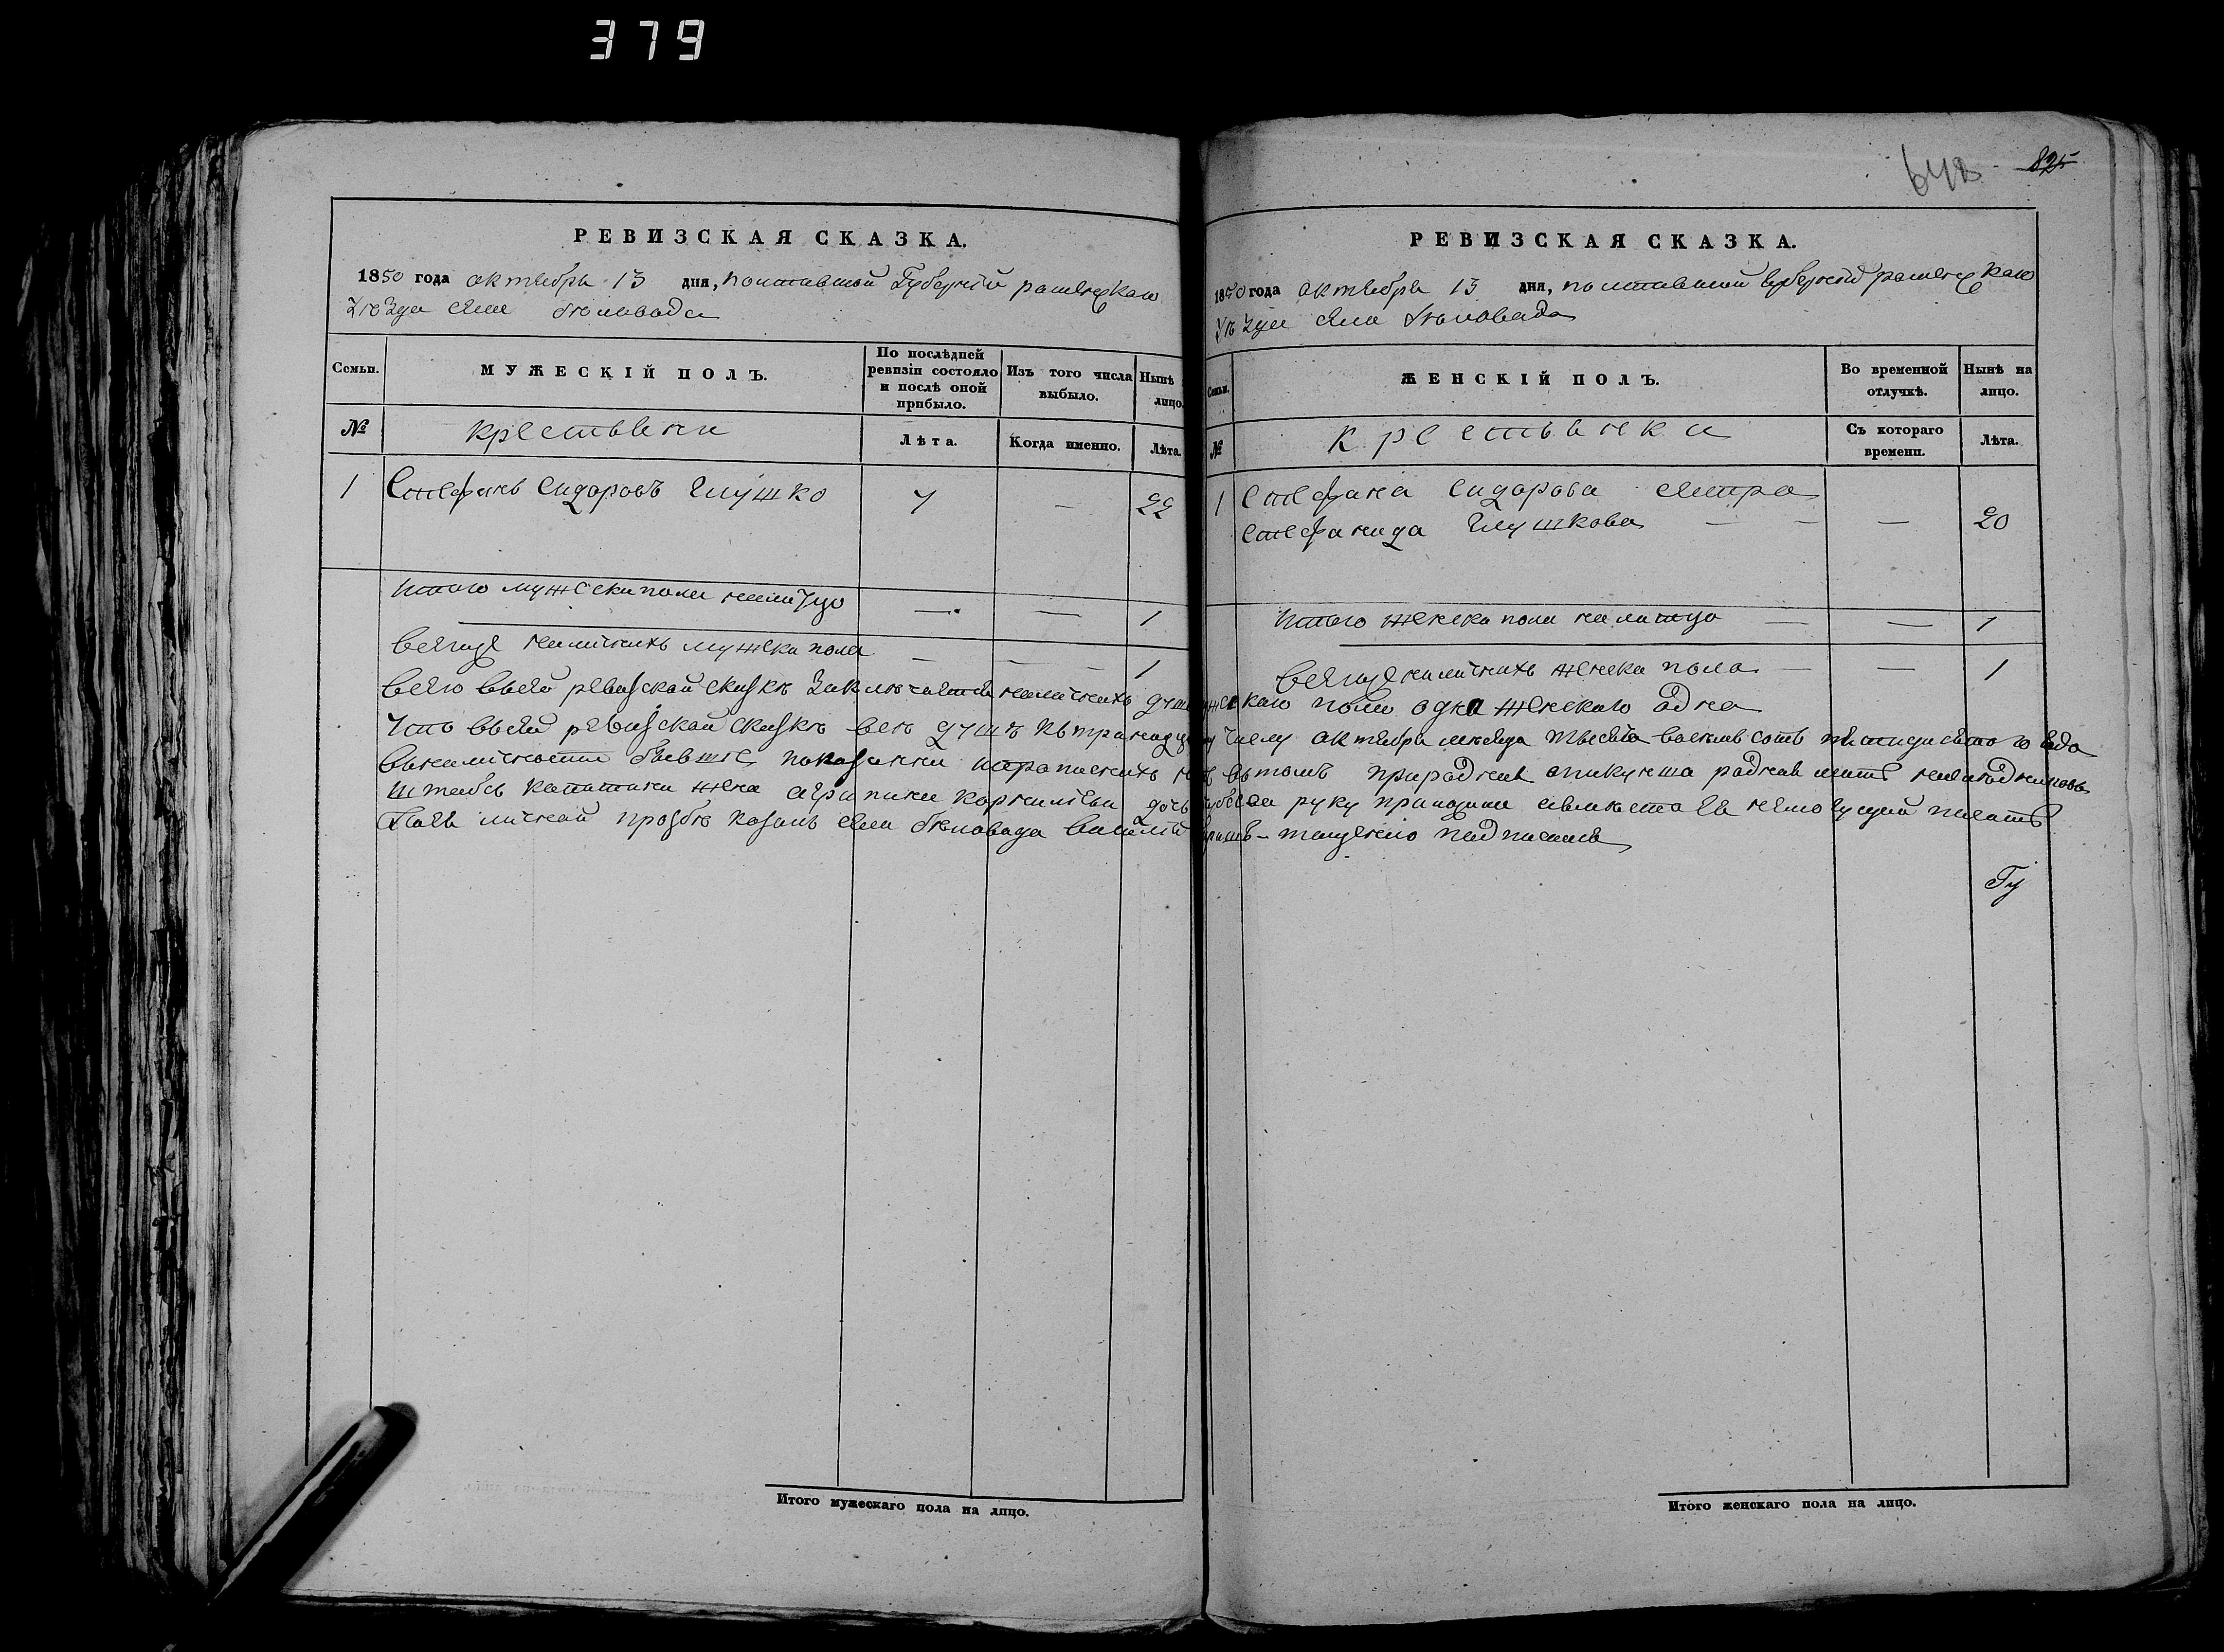 379
825
РЕВИЗСКАЯ СКАЗКА.
1850 года октебря 13 дня, полтавской Губернiи роменскаго
Уѣзда села бѣловода
Семьи.
МУЖЕСКІЙ ПОЛЪ.
По послѣдней ревизіи состояло и послѣ оной прибыло.
Изъ того числа выбыло.
Нынѣ лицо.
№
крестьяни
Лѣта.
Когда именно.
Лѣта.
1 Стефанъ Сидоровъ Глушко 7 — 22
итого мужеска пола налицо — — 1
Всѣхъ наличнихъ мужска пола — — — 1
РЕВИЗСКАЯ СКАЗКА.
1850 года октебря 13 дня, полтавской губернiи роменскаго
Уѣзда села бѣловода
Семьи.
ЖЕНСКІЙ ПОЛЪ.
Во временной отлучкѣ.
Нынѣ на лицо.
№
крестьянки
Съ котораго времени.
Лѣта.
1 Стефана Сидорова сестра
Стефанида Глушкова — — — 20
итого женска пола на лицо — — 1
наличнихъ женска пола — — 1
всего всей ревизской скаскѣ заключается наличнихъ душъ мужескаго пола одна женскаго одна
Что всей ревизской скаскѣ всѣ душѣ октебря мѣсяца тысеча восемъ сотъ пятидисятого года
показанни
штабсъ капитана жена агрипина корнилiева дочь руку писать
прозбѣ козакъ села бѣловода василiй подписался
Гу
Итого мужескаго пола на лицо.
Итого женскаго пола на лицо.